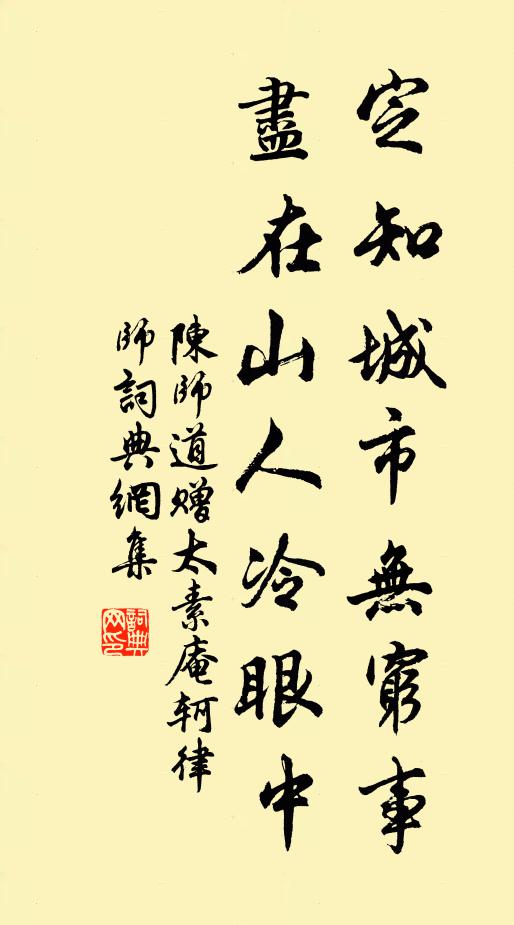 定知城市無窮事
盡在山人冷眼中
陳師道贈太素庵軻律
師詞典網集
詞典網印